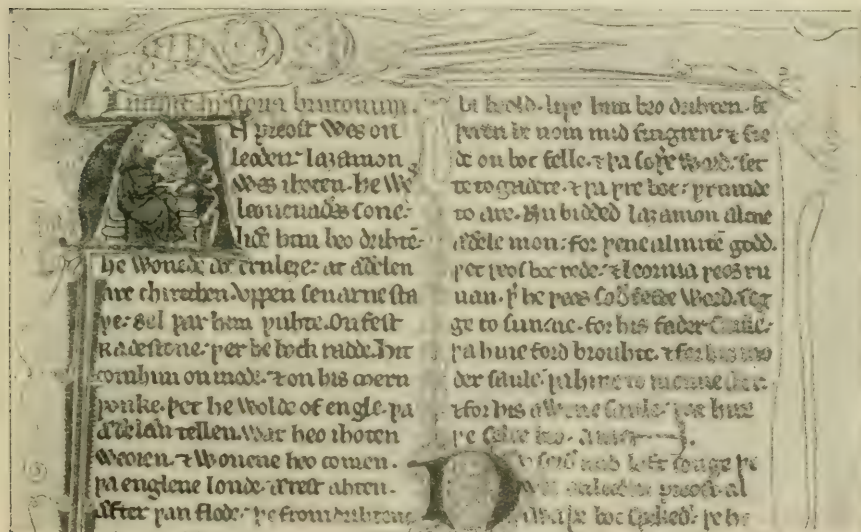 Incipit hystoria brutonum.
A preost wes on
leoden. laȝamon
wes ihoten. he wes
leouenaðes sone.
liðe him beo drihtē.
he wonede at ernleȝe. at æðelen
are chirechen. vppen seuarne sta
þe. sel þar him þuhte. on fest
Radestone. þer he bock radde. hit
com him on mode. ⁊ on his mern
þonke. þet he wolde of engle. þa
æðelæn tellen. wat heo ihoten
weoren. ⁊ wonene heo comen.
þa englene londe. ærest ahten.
æfter þan flode. þe from drihtene
bi heold. liþe him beo drihten. fe
þeren he nom mid fingren. ⁊ fie
de on boc felle. ⁊ þa soþe word. set
te to gadere. ⁊ þa þre boc. þrumde
to are. Nu bidded laȝamon alcne
æðele mon. for þene almitē godd.
þet þeos boc rede. ⁊ leornia þeos ru
nan. þ he þeos soðfeste word. seg
ge to sumne. for his fader saule.
þa hine forð brouhte. ⁊ for his mo
der saule. þa hine to monne iber.
⁊ for his awene saule. þat hire
þe selre beo. amen.
Nu seið mid loft songe þe
wes on leoden preost. al
swa þe boc spekeð. þe he